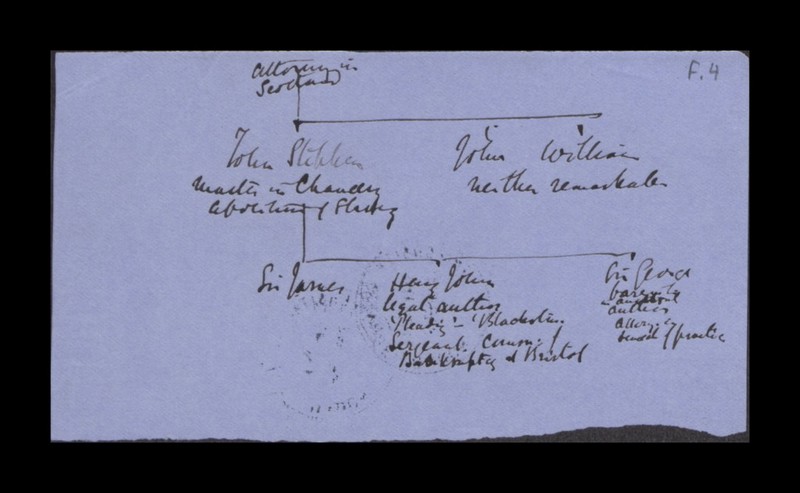 F.4
Attorney in
Scotland
John Stephen
Master in Chancery
abolition of Slavery
John William
neither remarkable
Sir James
Henry John
legal author
'Pleading' - 'Blackstone'
Sergeant Comm. of
Bankruptcy at Bristol
Sir George
author
attorney
of practice